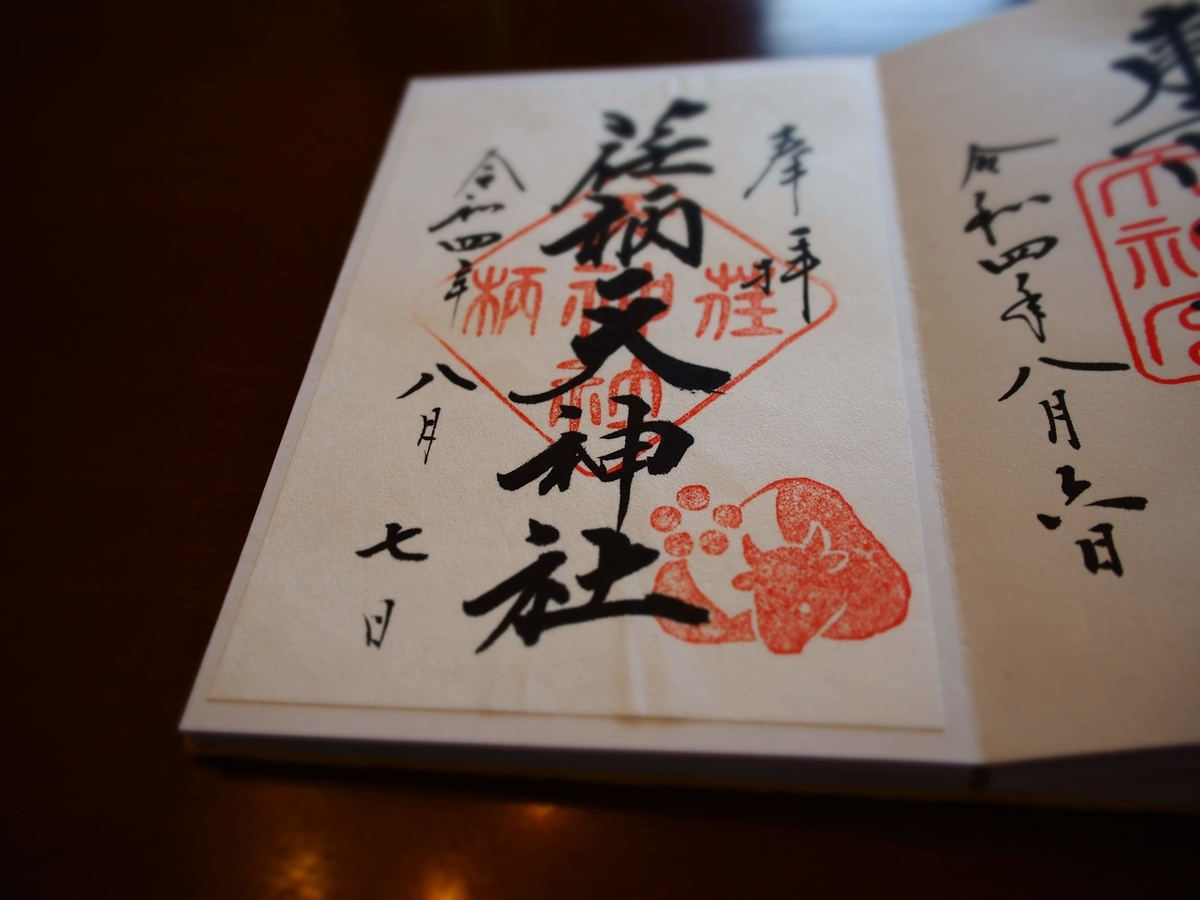 令和四年八月六日
奉拝
荏柄天神社
令和四年八月七日
荏
神
柄